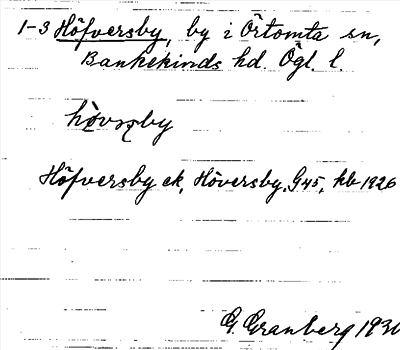 1-3 Höfversby, by i Örtomta sn,
Bankekinds hd. Ögl. l.
Höfversby ek, Höversby, G45, kb 1926
G. Granberg 193